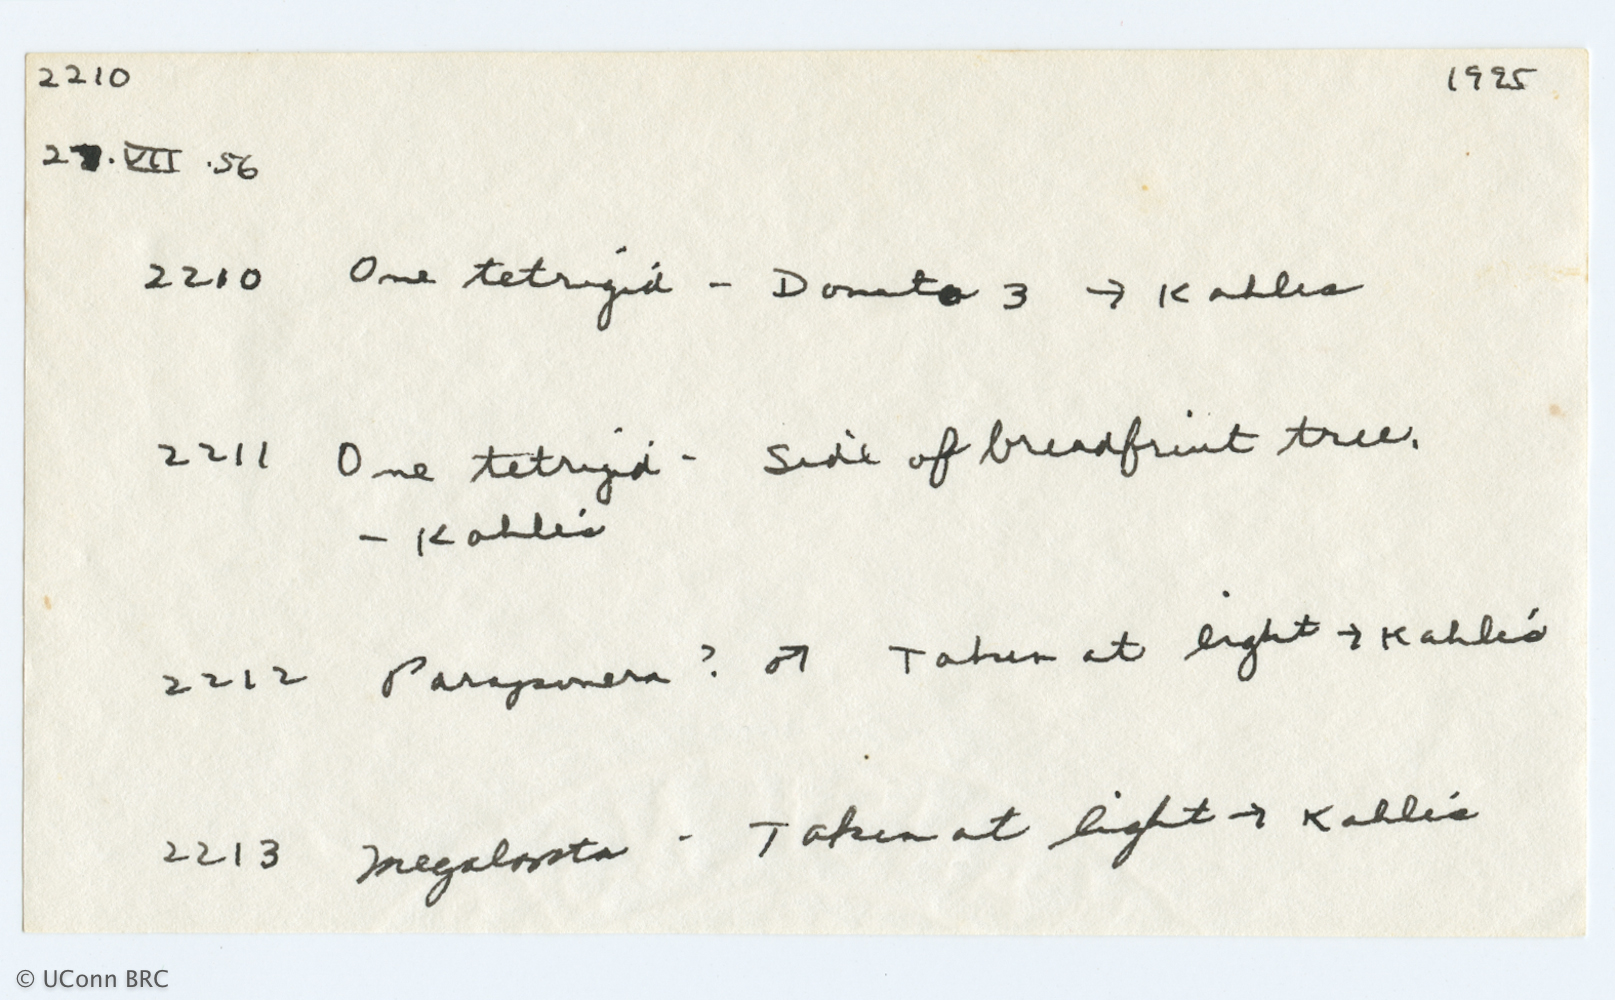 2210 1995
27.VII.56
2210 One tetrigid - Donato 3 → Kahles
2211 One tetrigid - Side of breadfruit tree.
- Kahle's
2212 Paraponera? ♂ Taken at light → Kahle's
2213 Taken at light → Kahle's
© UConn BRC